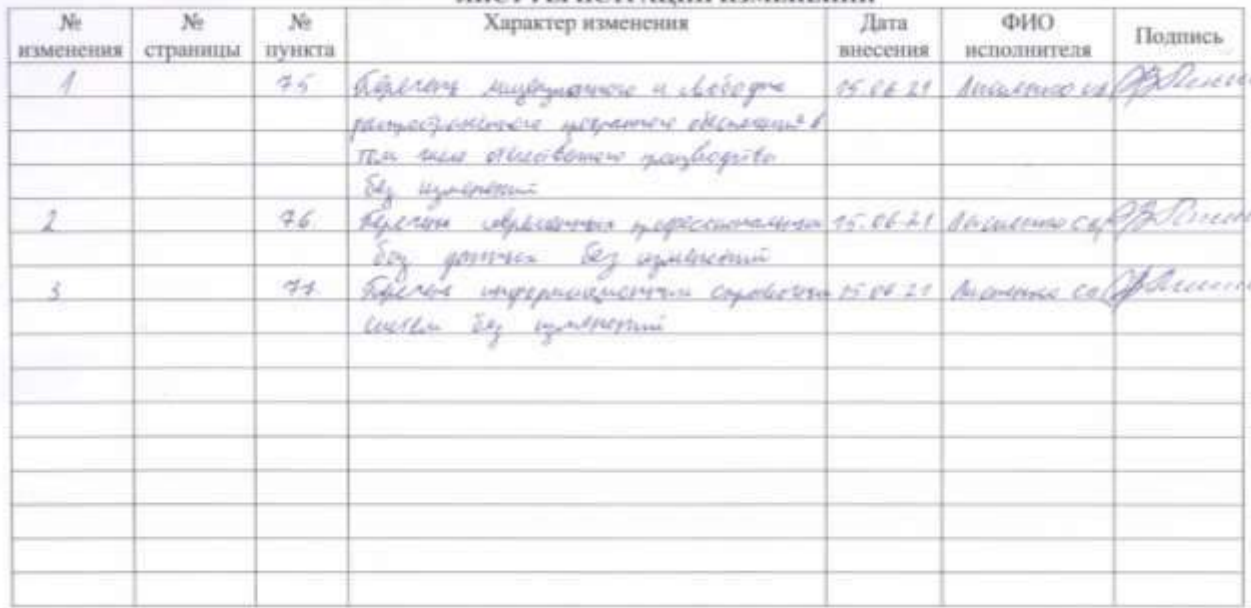 ЛИСТ РЕГИСТРАЦИИ ИЗМЕНЕНИЙ
№ изменения № страницы № пункта Характер изменения Дата внесения ФИО исполнителя Подпись
1 75 Перечень лицензионного и свободно 15.06.21
распространяемого программного обеспечения в
том числе отечественного производства
без изменений
2 76. Перечень современных профессиональных 15.06.21
баз данных без изменений
3 77. Перечень информационных справочных 15.06.21
систем без изменений